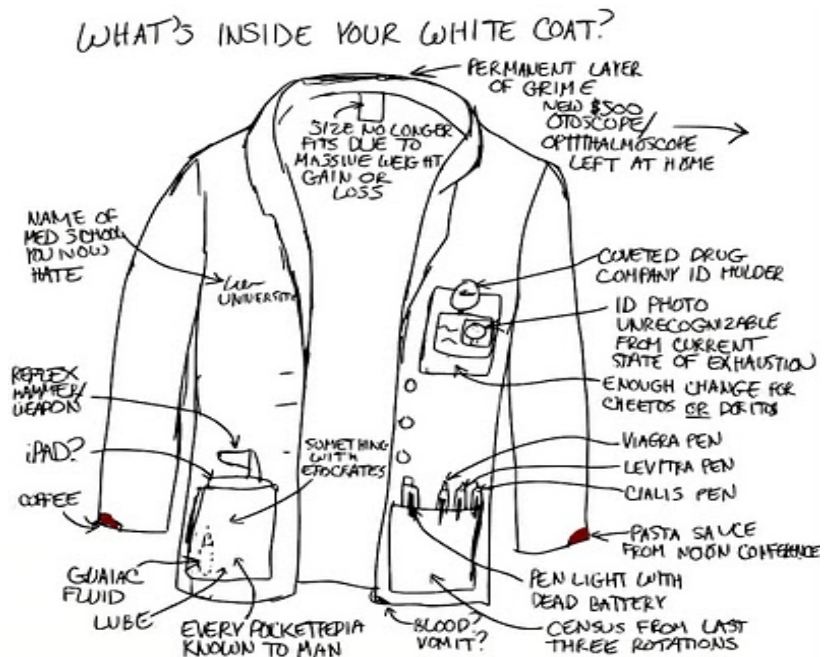 WHAT'S INSIDE YOUR WHITE COAT?
PERMANENT LAYER
OF GRIME
NEW $500
OTOSCOPE/
OPHTHALMOSCOPE
LEFT AT HOME
SIZE NO LONGER
FITS DUE TO
MASSIVE WEIGHT
GAIN OR
LOSS
NAME OF
MED SCHOOL
YOU NOW
HATE
UNIVERSITY
COVETED DRUG
COMPANY ID HOLDER
ID PHOTO
UNRECOGNIZABLE
FROM CURRENT
STATE OF EXHAUSTION
ENOUGH CHANGE FOR
CHEETOS OR DORITOS
REFLEX
HAMMER/
WEAPON
iPAD?
COFFEE
SOMETHING
WITH
EPOCRATES
VIAGRA PEN
LEVITRA PEN
CIALIS PEN
PASTA SAUCE
FROM NOON CONFERENCE
GUAIAC
FLUID
LUBE
EVERY POCKETPEDIA
KNOWN TO MAN
BLOOD?
VOMIT?
PEN LIGHT WITH
DEAD BATTERY
CENSUS FROM LAST
THREE ROTATIONS